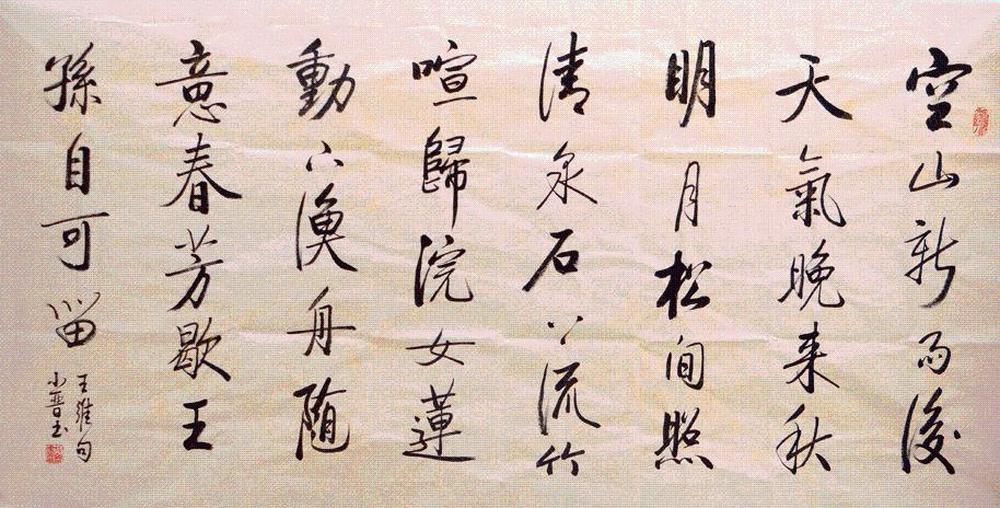 空山新雨後
天氣晚来秋
明月松间照
清泉石上流竹
喧歸浣女蓮
動下漁舟随
意春芳歇王
孫自可留
王維句